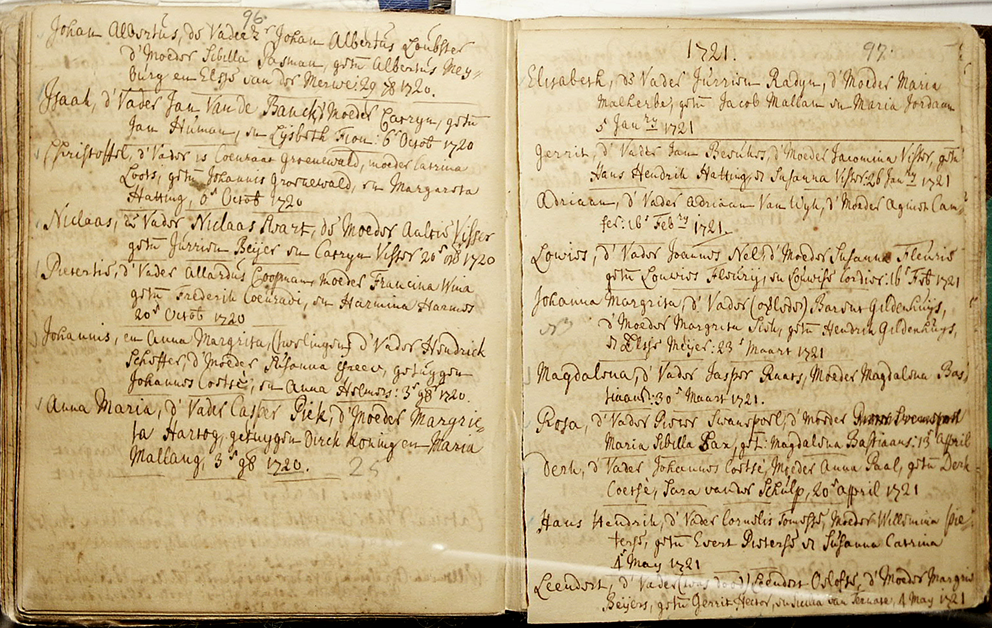 96.
Johan Albertus, de Vader Johan Albertus Loubster
d'Moeder Sibilla Pasman, getn Albertus Mey-
burg en Elsje van der Merwe: 29 7b 1720.
Isaak, d'Vader Jan Van de Banck, Moeder Catryn, getn
Jan Human, en Lijsbeth 6 Octob 1720
Christoffel, d'Vader is Coenraat Groenewald, moeder Catrina
Loots, getn Johannis Groenewald, en Margareta
Hatting, Octob 1720
Niclaas, de Vader Niclaas Swart, de Moeder Aultie Visser
getn Jurrien Beijer en Catryn Visser 20 1720
Pieternis, d'Vader Allardus Coopman, moeder Francina
getn Frederik Coenradi, en Harmina Haamos
20 Octob 1720
Johannis, en Anna Margrita, (tweelingen) d'Vader Hendrick
Scheffer, d'Moeder Susanna getuygen
Johannes Coetse, en Anna 3 9b 1720.
Anna Maria, d'Vader Casper Piek, d'Moeder Margrie
ta Hartog, getuygen Dirck Koning en Maria
Mallang, 3 9b 1720.
25
1721. 97.
Elisabeth, de Vader Jurrien Radyn, d'Moeder Maria
Malherbe, getn Jacob Mallan en Maria Jordaan
5 Janry 1721
Gerrit, d'Vader Jan d'Moeder Jacomina Visser, getn
Hans Hendrik Hattingh en Susanna Visser: 26 Janry 1721
Adriaan, d'Vader Adriaan Van Wyk, d'Moeder Agniet Cam-
fer: 16 Febry 1721.
Lowies, d'Vader Joannes Nel, d'Moeder Susanna Fleuris
getn Louwies Fleurij, en Louwise Cordier: 16 Feb 1721
Johanna Margrita, d'Vader (overleden) Barent Gildenhuys,
NB d'Moeder Margrita getn Hendrik Gildenhuys,
en Elsje Meijer: 23 Maart 1721
Magdalena, d'Vader Jasper Raats, Moeder Magdalena Bas
tiaans: 30 Maart 1721.
Rosa, d'Vader Pieter Swanepoel, d'Moeder
Maria Sibilla get: Magdalena Bastiaans: 13 April
Derk, d'Vader Johannes Coetse, Moeder Anna Paal, getn Derk
Coetse, Sara van der Schulp, 20 April 1721
Hans Hendrik, d'Vader Cornelis Moeder Willemina Pie
ters, getn Evert Pieterse en Susanna Catrina
4 May 1721
Leendert, d'Vader Leendert d'Moeder Margrit
Beijers, getn Gerrit en van Ternate, 4 May 1721